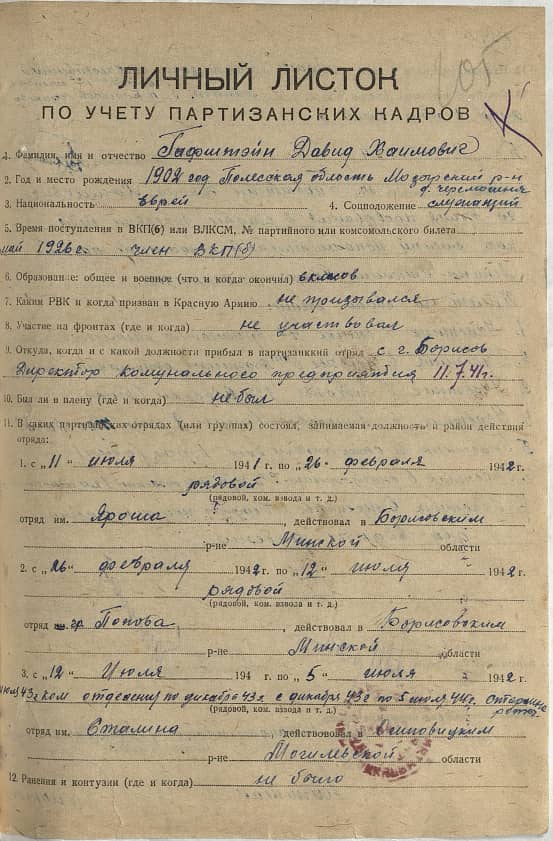 105
ЛИЧНЫЙ ЛИСТОК
ПО УЧЕТУ ПАРТИЗАНСКИХ КАДРОВ
1. Фамилия, имя и отчество Гафштэйн Давид Хаимович
2. Год и место рождения 1902 год Полесская область Мозырский р-н
д.
3. Национальность еврей 4. Соцположение служащий
5. Время поступления в ВКП(б) или ВЛКСМ, № партийного или комсомольского билета
май 1926 г. член ВКП(б)
6. Образование: общее и военное (что и когда окончил)
7. Каким РВК и когда призван в Красную Армию не призывался
8. Участие на фронтах (где и когда) не участвовал
9. Откуда, когда и с какой должности прибыл в партизанкий отряд с г. Борисов
Директор комунального предприятия 11.7.41г.
10. Был ли в плену (где и когда) не был
11. В каких партизанских отрядах (или группах) состоял, занимаемая должность и район действия
отряда:
1. с „11“ июля 1941 г. по „26“ февраля 1942 г.
рядовой
(рядовой, ком. взвода и т. д.)
отряд им. Яроша, действовал в Борисовским
р-не Минской области
2. с „26“ февраля 1942 г. по „12“ июля 1942
рядовой
(рядовой, ком. взвода и т. д.)
отряд гр Попова, действовал в Борисовским
р-не Минской области
3. с „12“ Июля 194 г. по „5“ июля 1942 г.
43г ком отделения по декабрь 43г с декабря 43г по 5 июля 44г. старшина
роты
(рядовой, ком. взвода и т. д.)
отряд им. Сталина, действовал в Осиповицким
р-не Могилевской области
12. Ранения и контузии (где и когда) не было